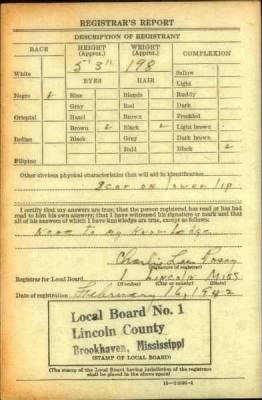 REGISTRAR'S REPORT
DESCRIPTION OF REGISTRANT
RACE HEIGHT (Approx.) WEIGHT (Approx.) COMPLEXION
5' 3" 198
White Sallow
EYES HAIR Light
Negro Blue Blonde Ruddy
Gray Red Dark
Oriental Hazel Brown Freckled
Brown Black Light brown
Indian Black Gray Dark brown
Bald Black
Filipino
Other obvious physical characteristics that will aid in identification
Scar on lower lip
I certify that my answers are true; that the person registered has read or has had
read to him his own answers; that I have witnessed his signature or mark and that
all of his answers of which I have knowledge are true, except as follows:
None to my knowledge
Charlie Lee
(Signature of registrar)
Registrar for Local Board 1 Lincoln Miss
(Number) (City or county) (State)
Date of registration February 16, 1942
Local Board No. 1
Lincoln County
Brookhaven, Mississippi
(STAMP OF LOCAL BOARD)
(The stamp of the Local Board having jurisdiction of the registrant
shall be placed in the above space)